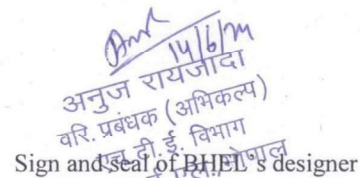 14/6/24
अनुज रायजादा
वरि. प्रबंधक (अभिकल्प)
एच. टी. ई. विभाग
भोपाल
Sign and seal of BHEL's designer